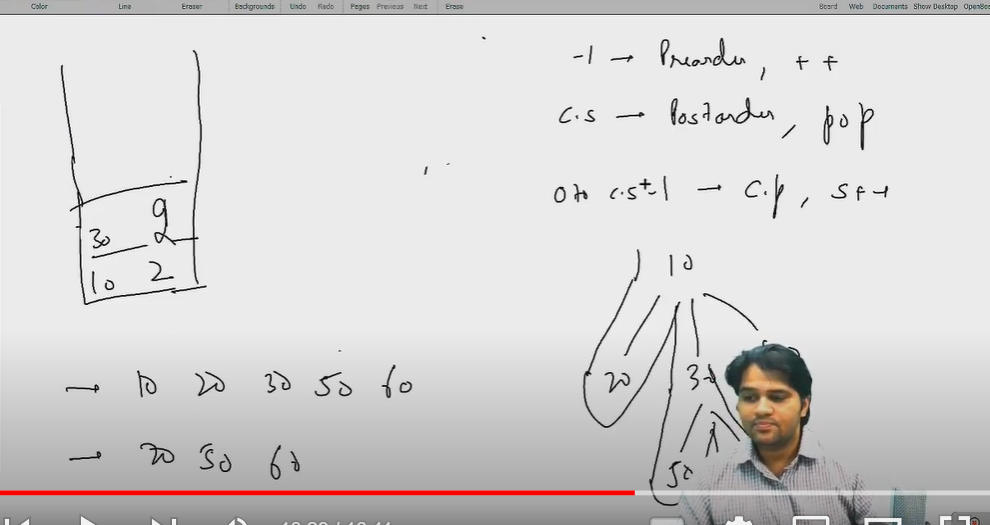 Color Line Eraser Backgrounds Undo Redo Pages Previous Next Erase Board Web Documents Show Desktop
-1 → Preorder, ++
c.s → Postorder, pop
0 to c.s-1 → c.p, s++
30
10 2
10
20 30
50
→ 10 20 30 50 60
→ 20 50 60